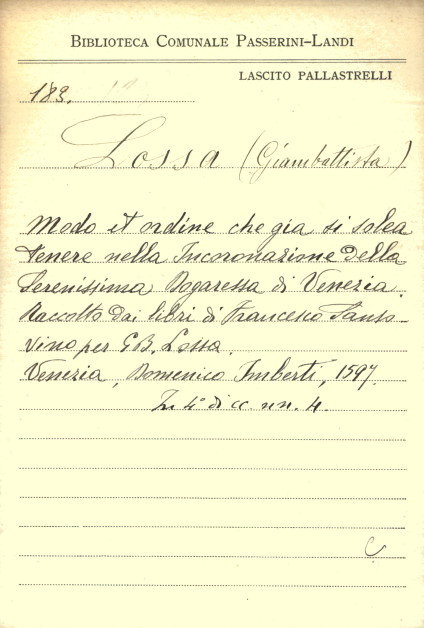 BIBLIOTECA COMUNALE PASSERINI-LANDI
LASCITO PALLASTRELLI
183.
Lossa (Giambattista)
Modo et ordine che gia si solea
tenere nella Incoronazione della
Serenissima Dogaressa di Venezia.
Raccolto dai libri di Francesco Sanso-
vino per GB. Lossa.
Venezia, Domenico Imberti, 1597.
In 4° di cc. nn. 4.
C